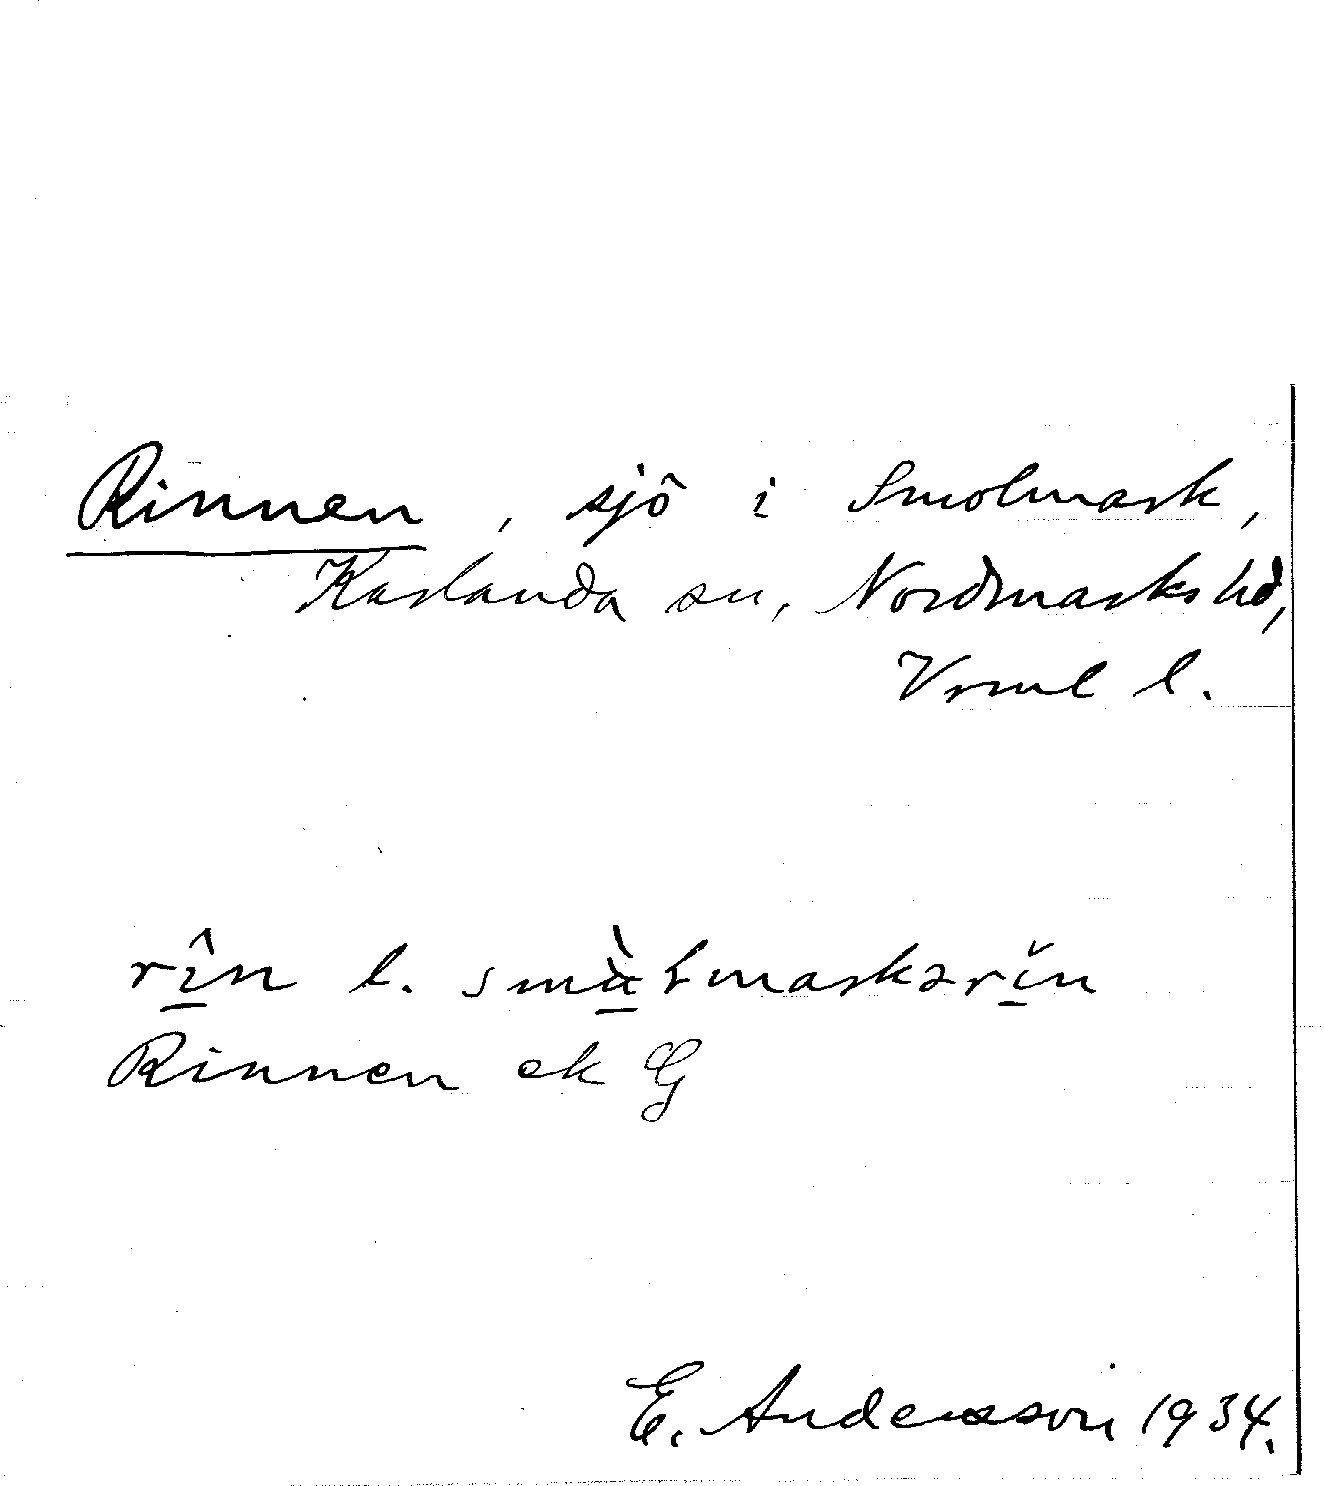 Rinnen, sjö i Smolmark,
Karlanda sn, Nordmarks hd,
Vrml l.
rîn l. smàɫmarkərĭn
Rinnen ek G
E. Andersson 1934.